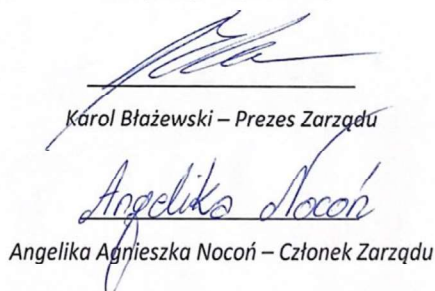 Karol Błażewski – Prezes Zarządu
Angelika Nocoń
Angelika Agnieszka Nocoń – Członek Zarządu